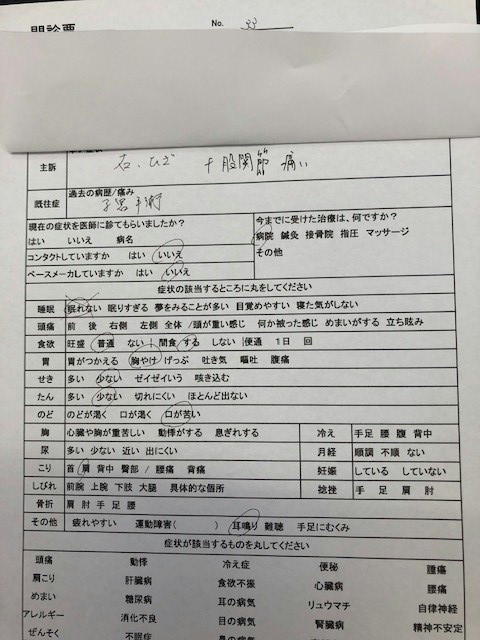 問診票 No. 33
主訴 右、ひざ + 股関節 痛い
既往症 過去の病歴/痛み
子宮手術
現在の症状を医師に診てもらいましたか?
はい いいえ 病名
コンタクトしていますか はい いいえ
ペースメーカしていますか いいえ
今までに受けた治療は、何ですか?
病院 鍼灸 接骨院 指圧 マッサージ
その他
症状の該当するところに丸をしてください
睡眠 眠れない 眠りすぎる 夢をみることが多い 目覚めやすい 寝た気がしない
頭痛 前 後 右側 左側 全体 /頭が重い感じ 何か被った感じ めまいがする 立ち眩み
食欲 旺盛 普通 ない 間食 する しない 便通 1日 回
胃 胃がつかえる 胸やけ げっぷ 吐き気 嘔吐 腹痛
せき 多い 少ない ゼイゼイいう 咳き込む
たん 多い 少ない 切れにくい ほとんど出ない
のど のどが渇く 口が渇く 口が苦い
胸 心臓や胸が重苦しい 動悸がする 息ぎれする 冷え 手足 腰 腹 背中
尿 多い 少ない 近い 出にくい 月経 順調 不順 ない
こり 首 肩 背中 臀部 / 腰痛 背痛 妊娠 している していない
しびれ 前腕 上腕 下肢 大腿 具体的な個所 捻挫 手 足 肩 肘
骨折 肩 肘 手 足 腰
その他 疲れやすい 運動障害( ) 耳鳴り 難聴 手足にむくみ
症状が該当するものを丸してください
頭痛 動悸 冷え症 便秘 腫痛
肩こり 肝臓病 食欲不振 心臓病 腰痛
めまい 糖尿病 耳の病気 リュウマチ 自律神経
アレルギー 消化不良 目の病気 腎臓病 精神不安定
ぜんそく 不眠症